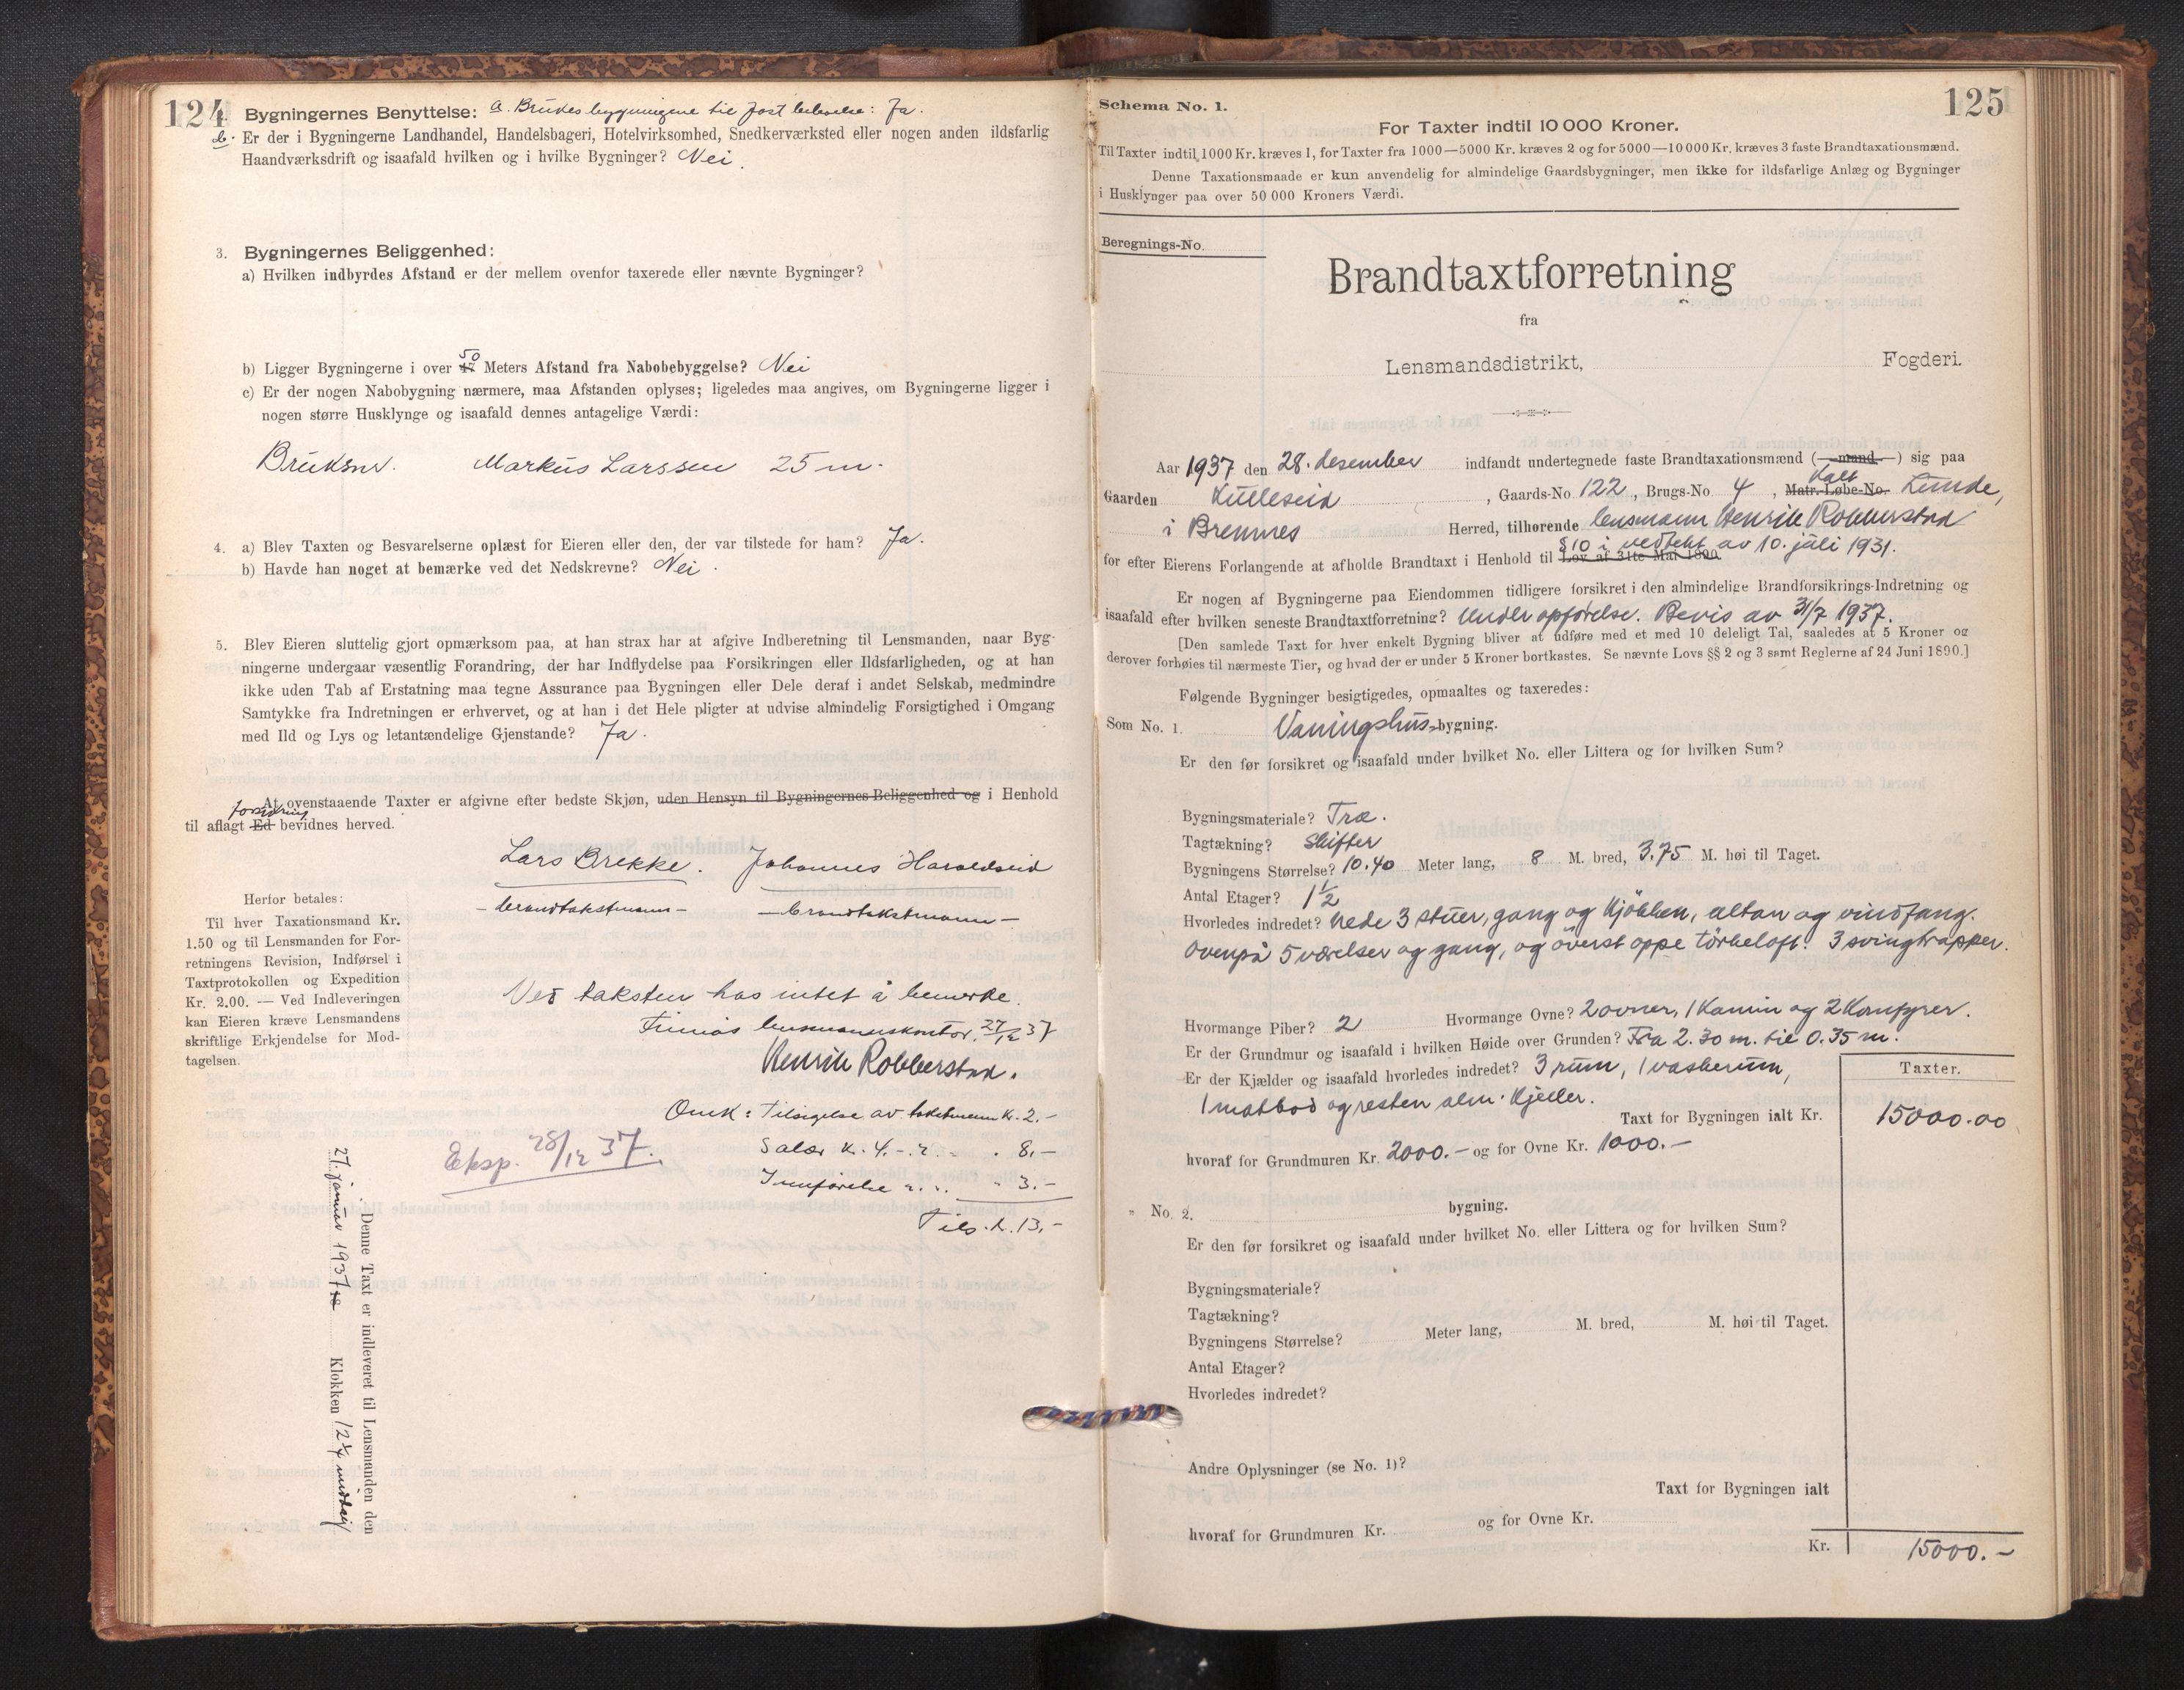 124
Bygningernes Benyttelse: a. Brukes bygningene til fast beboelse: Ja.
b. Er der i Bygningerne Landhandel, Handelsbageri, Hotelvirksomhed, Snedkerværksted eller nogen anden ildsfarlig
Haandværksdrift og isaafald hvilken og i hvilke Bygninger? Nei.
3. Bygningernes Beliggenhed:
a) Hvilken indbyrdes Afstand er der mellem ovenfor taxerede eller nævnte Bygninger?
b) Ligger Bygningerne i over 50 Meters Afstand fra Nabobebyggelse? Nei
c) Er der nogen Nabobygning nærmere, maa Afstanden oplyses; ligeledes maa angives, om Bygningerne ligger i
nogen større Husklynge og isaafald dennes antagelige Værdi:
Bruksnr. Markus Larssen 25 m.
4. a) Blev Taxten og Besvarelserne oplæst for Eieren eller den, der var tilstede for ham? Ja.
b) Havde han noget at bemærke ved det Nedskrevne? Nei.
5. Blev Eieren sluttelig gjort opmærksom paa, at han strax har at afgive Indberetning til Lensmanden, naar Byg-
ningerne undergaar væsentlig Forandring, der har Indflydelse paa Forsikringen eller Ildsfarligheden, og at han
ikke uden Tab af Erstatning maa tegne Assurance paa Bygningen eller Dele deraf i andet Selskab, medmindre
Samtykke fra Indretningen er erhvervet, og at han i det Hele pligter at udvise almindelig Forsigtighed i Omgang
med Ild og Lys og letantændelige Gjenstande? Ja.
At ovenstaaende Taxter er afgivne efter bedste Skjøn, uden Hensyn til Bygningernes Beliggenhed og i Henhold
forsikring
til aflagt Ed bevidnes herved.
Lars Brekke. Johannes Haraldseid
- brandtakstmann - - brandtakstmann -
Herfor betales:
Til hver Taxationsmand Kr.
1.50 og til Lensmanden for For-
retningens Revision, Indførsel i
Taxtprotokollen og Expedition
Kr. 2.00. — Ved Indleveringen
kan Eieren kræve Lensmandens
skriftlige Erkjendelse for Mod-
tagelsen.
Ved taksten has intet å bemerke.
Finnås lensmannskontor, 27/12 37
Henrik Robberstad.
Omk: Tilsigelse av takstmenn Kr. 2.-
Salær Kr. 4.- 8.-
Innførelse 3.-
Tils. kr. 13.-
Eksp. 28/12 37.
Denne Taxt er indleveret til Lensmanden den
27. januar 1937 Klokken 12¼ middag
Schema No. 1.
125
For Taxter indtil 10 000 Kroner.
Til Taxter indtil 1000 Kr. kræves 1, for Taxter fra 1000—5000 Kr. kræves 2 og for 5000—10 000 Kr. kræves 3 faste Brandtaxationsmænd.
Denne Taxationsmaade er kun anvendelig for almindelige Gaardsbygninger, men ikke for ildsfarlige Anlæg og Bygninger
i Husklynger paa over 50 000 Kroners Værdi.
Beregnings-No.
Brandtaxtforretning
fra
Lensmandsdistrikt, Fogderi.
Aar 1937 den 28. desember indfandt undertegnede faste Brandtaxationsmænd (—mand—) sig paa
Gaarden Kulleseid, Gaards-No. 122, Brugs-No. 4, Matr. Løbe-No. kalt Lunde,
i Bremnes Herred, tilhørende lensmann Henrik Robberstad
§ 10 i vedtekt av 10. juli 1931.
for efter Eierens Forlangende at afholde Brandtaxt i Henhold til Lov af 31te Mai 1890
Er nogen af Bygningerne paa Eiendommen tidligere forsikret i den almindelige Brandforsikrings-Indretning og
isaafald efter hvilken seneste Brandtaxtforretning? Under opførelse. Bevis av 31/7 1937.
[Den samlede Taxt for hver enkelt Bygning bliver at udføre med et med 10 deleligt Tal, saaledes at 5 Kroner og
derover forhøies til nærmeste Tier, og hvad der er under 5 Kroner bortkastes. Se nævnte Lovs §§ 2 og 3 samt Reglerne af 24 Juni 1890.]
Følgende Bygninger besigtigedes, opmaaltes og taxeredes:
Som No. 1. Vaningshus-bygning.
Er den før forsikret og isaafald under hvilket No. eller Littera og for hvilken Sum?
Bygningsmateriale? Træ.
Tagtækning? Skifter
Bygningens Størrelse? 10.40 Meter lang, 8 M. bred, 3.75 M. høi til Taget.
Antal Etager? 1½
Hvorledes indredet? Nede 3 stuer, gang og kjøkken, altan og vindfang.
Ovenpå 5 værelser og gang, og øverst oppe tørkeloft. 3 svingtrapper.
Hvormange Piber? 2 Hvormange Ovne? 2 ovner, 1 Kamin og 2 Komfyrer.
Er der Grundmur og isaafald i hvilken Høide over Grunden? Fra 2.30 m. til 0.35 m.
Er der Kjælder og isaafald hvorledes indredet? 3 rum, 1 vaskerum,
1 matbod og resten alm. kjeller.
Taxter.
Taxt for Bygningen ialt Kr. 15000.00
hvoraf for Grundmuren Kr. 2000.- og for Ovne Kr. 1000.-
" No. 2. bygning.
Er den før forsikret og isaafald under hvilket No. eller Littera og for hvilken Sum?
Bygningsmateriale?
Tagtækning?
Bygningens Størrelse? Meter lang, M. bred, M. høi til Taget.
Antal Etager?
Hvorledes indredet?
Andre Oplysninger (se No. 1)?
Taxt for Bygningen ialt
hvoraf for Grundmuren Kr. og for Ovne Kr.
Kr. 15000.-